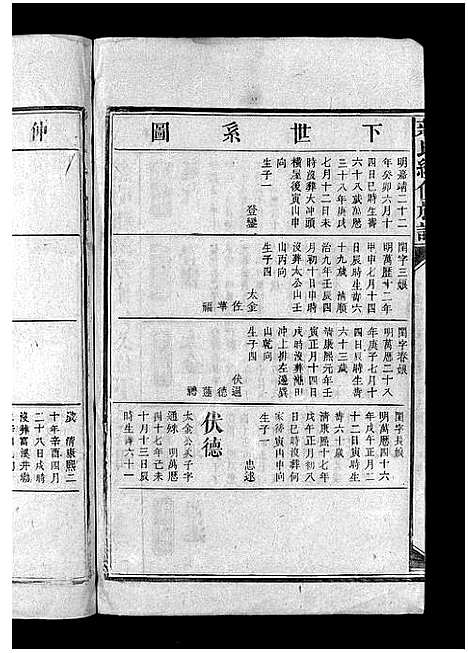 下世系圖
明嘉靖二十二
年癸卯六月十
四日巳時生壽
六十八歲萬歷
三十八年庚戌
七月十二日未
時沒葬大冲頭
橫屋後寅山申
向
生子一
登鑾
閨字三娘
明萬歷十二年
甲申七月十四
日辰時生壽六
十九歲 清順
治九年壬辰四
月初十日申時
沒葬太公山壬
山丙向
生子四
太金
佐華福
閨字春娘
明萬歷二十八
年庚子七月十
四日辰時生壽
六十三歲
清康熙元年壬
寅正月十四日
戌時沒葬
冲上排左邊
山乾向
生子四
伏迴德蓮聘
閨字長娘
明萬歷四十六
年戊午正月二
十二日寅時生
壽六十歲
清康熙十七年
戊午正月初八
日巳時沒葬何
家後寅山申向
生子一
忠述
伏德
太金公次子字
通殊 明萬歷
四十七年己未
十月十三日辰
時生壽六十一
仲
歲 清康熙二
十年辛酉四月
二十八日戌時
沒葬